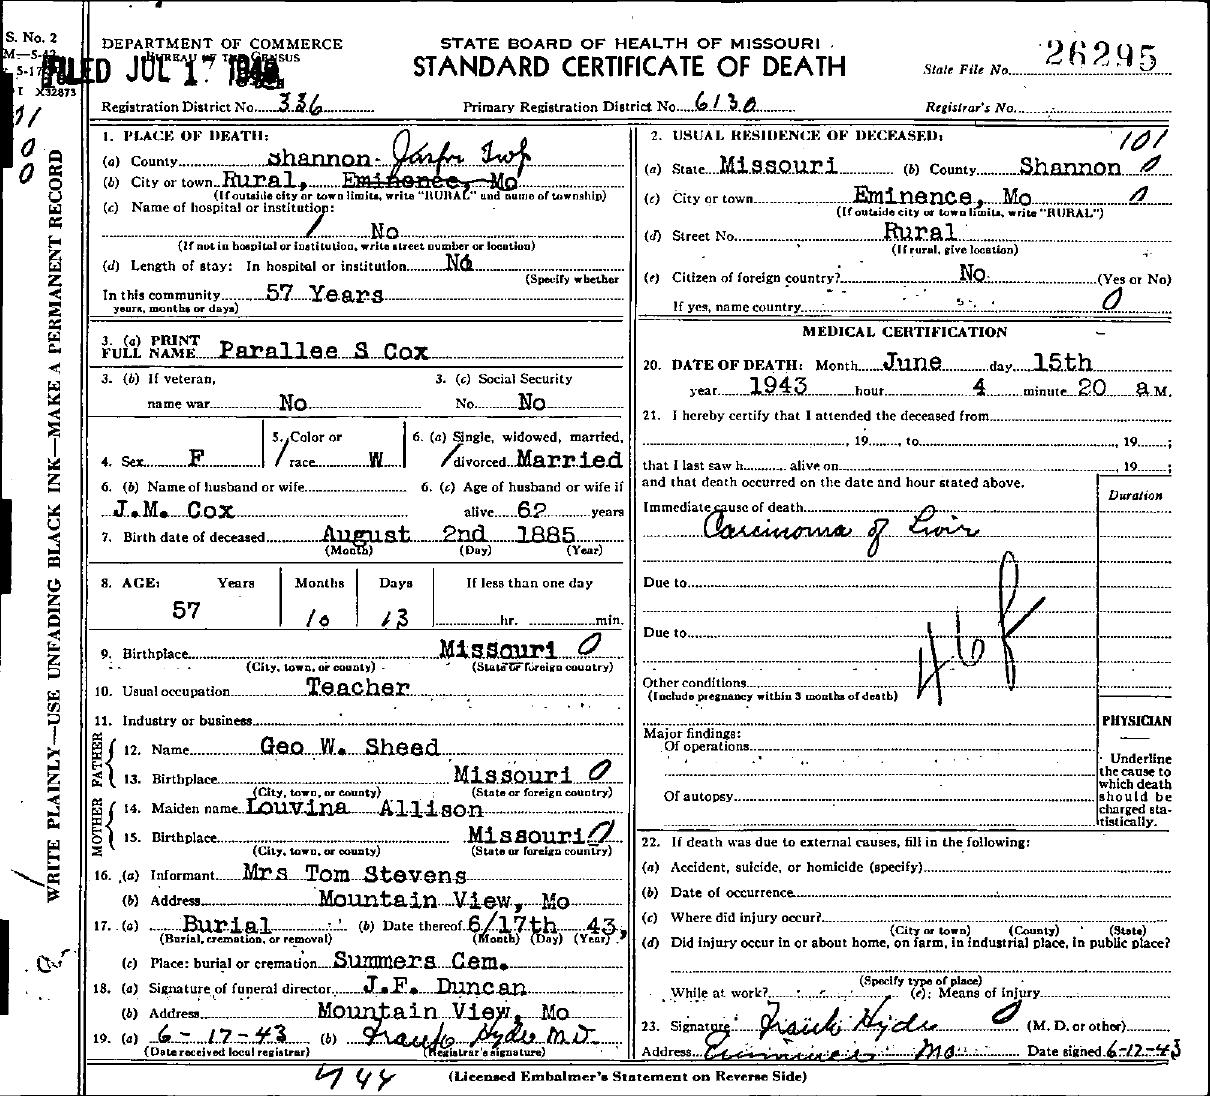 S. No. 2
DEPARTMENT OF COMMERCE
BUREAU OF THE CENSUS
FILED JUL 17
X32873
STATE BOARD OF HEALTH OF MISSOURI
STANDARD CERTIFICATE OF DEATH
State File No. 26295
Registration District No. 336
Primary Registration District No. 6130
Registrar's No.
WRITE PLAINLY—USE UNFADING BLACK INK—MAKE A PERMANENT RECORD
1. PLACE OF DEATH:
(a) County Shannon- Jasper Twp
(b) City or town Rural, Eminence, Mo
(If outside city or town limits, write "RURAL" and name of township)
(c) Name of hospital or institution:
No
(If not in hospital or institution, write street number or location)
(d) Length of stay: In hospital or institution No
(Specify whether
In this community 57 Years
years, months or days)
3. (a) PRINT
FULL NAME Parallee S Cox
3. (b) If veteran,
name war No
3. (c) Social Security
No. No
4. Sex F
5. Color or
race W
6. (a) Single, widowed, married,
divorced Married
6. (b) Name of husband or wife
J.M. Cox
6. (c) Age of husband or wife if
alive 62 years
7. Birth date of deceased August 2nd 1885
(Month) (Day) (Year)
8. AGE: Years Months Days If less than one day
57 10 13 hr. min.
9. Birthplace Missouri 0
(City, town, or county) (State or foreign country)
10. Usual occupation Teacher
11. Industry or business
FATHER
12. Name Geo W. Sheed
13. Birthplace Missouri 0
(City, town, or county) (State or foreign country)
MOTHER
14. Maiden name Louvina Allison
15. Birthplace Missouri 0
(City, town, or county) (State or foreign country)
16. (a) Informant Mrs Tom Stevens
(b) Address Mountain View, Mo
17. (a) Burial (b) Date thereof 6/17th 43,
(Burial, cremation, or removal) (Month) (Day) (Year)
(c) Place: burial or cremation Summers Cem.
18. (a) Signature of funeral director J.F. Duncan
(b) Address Mountain View, Mo
19. (a) 6-17-43 (b) Frank Hyde M.D.
(Date received local registrar) (Registrar's signature)
2. USUAL RESIDENCE OF DECEASED: 101
(a) State Missouri (b) County Shannon 0
(c) City or town Eminence, Mo 0
(If outside city or town limits, write "RURAL")
(d) Street No. Rural
(If rural, give location)
(e) Citizen of foreign country? No. (Yes or No)
If yes, name country 0
MEDICAL CERTIFICATION
20. DATE OF DEATH: Month June day 15th
year 1943 hour 4 minute 20 a M.
21. I hereby certify that I attended the deceased from
, 19 , to , 19 ;
that I last saw h alive on , 19 ;
and that death occurred on the date and hour stated above.
Duration
Immediate cause of death
Carcinoma of Livir
Due to
Due to
46f
Other conditions
(Include pregnancy within 3 months of death)
Major findings:
Of operations
Of autopsy
PHYSICIAN
Underline
the cause to
which death
should be
charged sta-
tistically.
22. If death was due to external causes, fill in the following:
(a) Accident, suicide, or homicide (specify)
(b) Date of occurrence
(c) Where did injury occur?
(City or town) (County) (State)
(d) Did injury occur in or about home, on farm, in industrial place, in public place?
(Specify type of place)
While at work? (e) Means of injury
23. Signature Frank Hyde 0 (M. D. or other)
Address Eminence Mo Date signed 6-17-43
744
(Licensed Embalmer's Statement on Reverse Side)